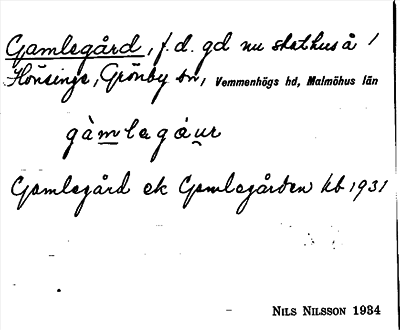 Gamlegård, f.d. gd nu stathus å 1
Hönsinge, Grönby sn, Vemmenhögs hd, Malmöhus län
gàmlegáur
Gamlegård ek Gamlegården kb 1931
NILS NILSSON 1934